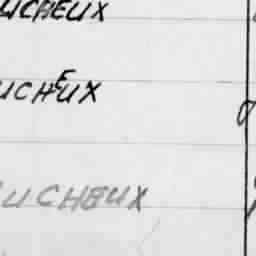 UCHEUX
UCHEUX
UCHEUX